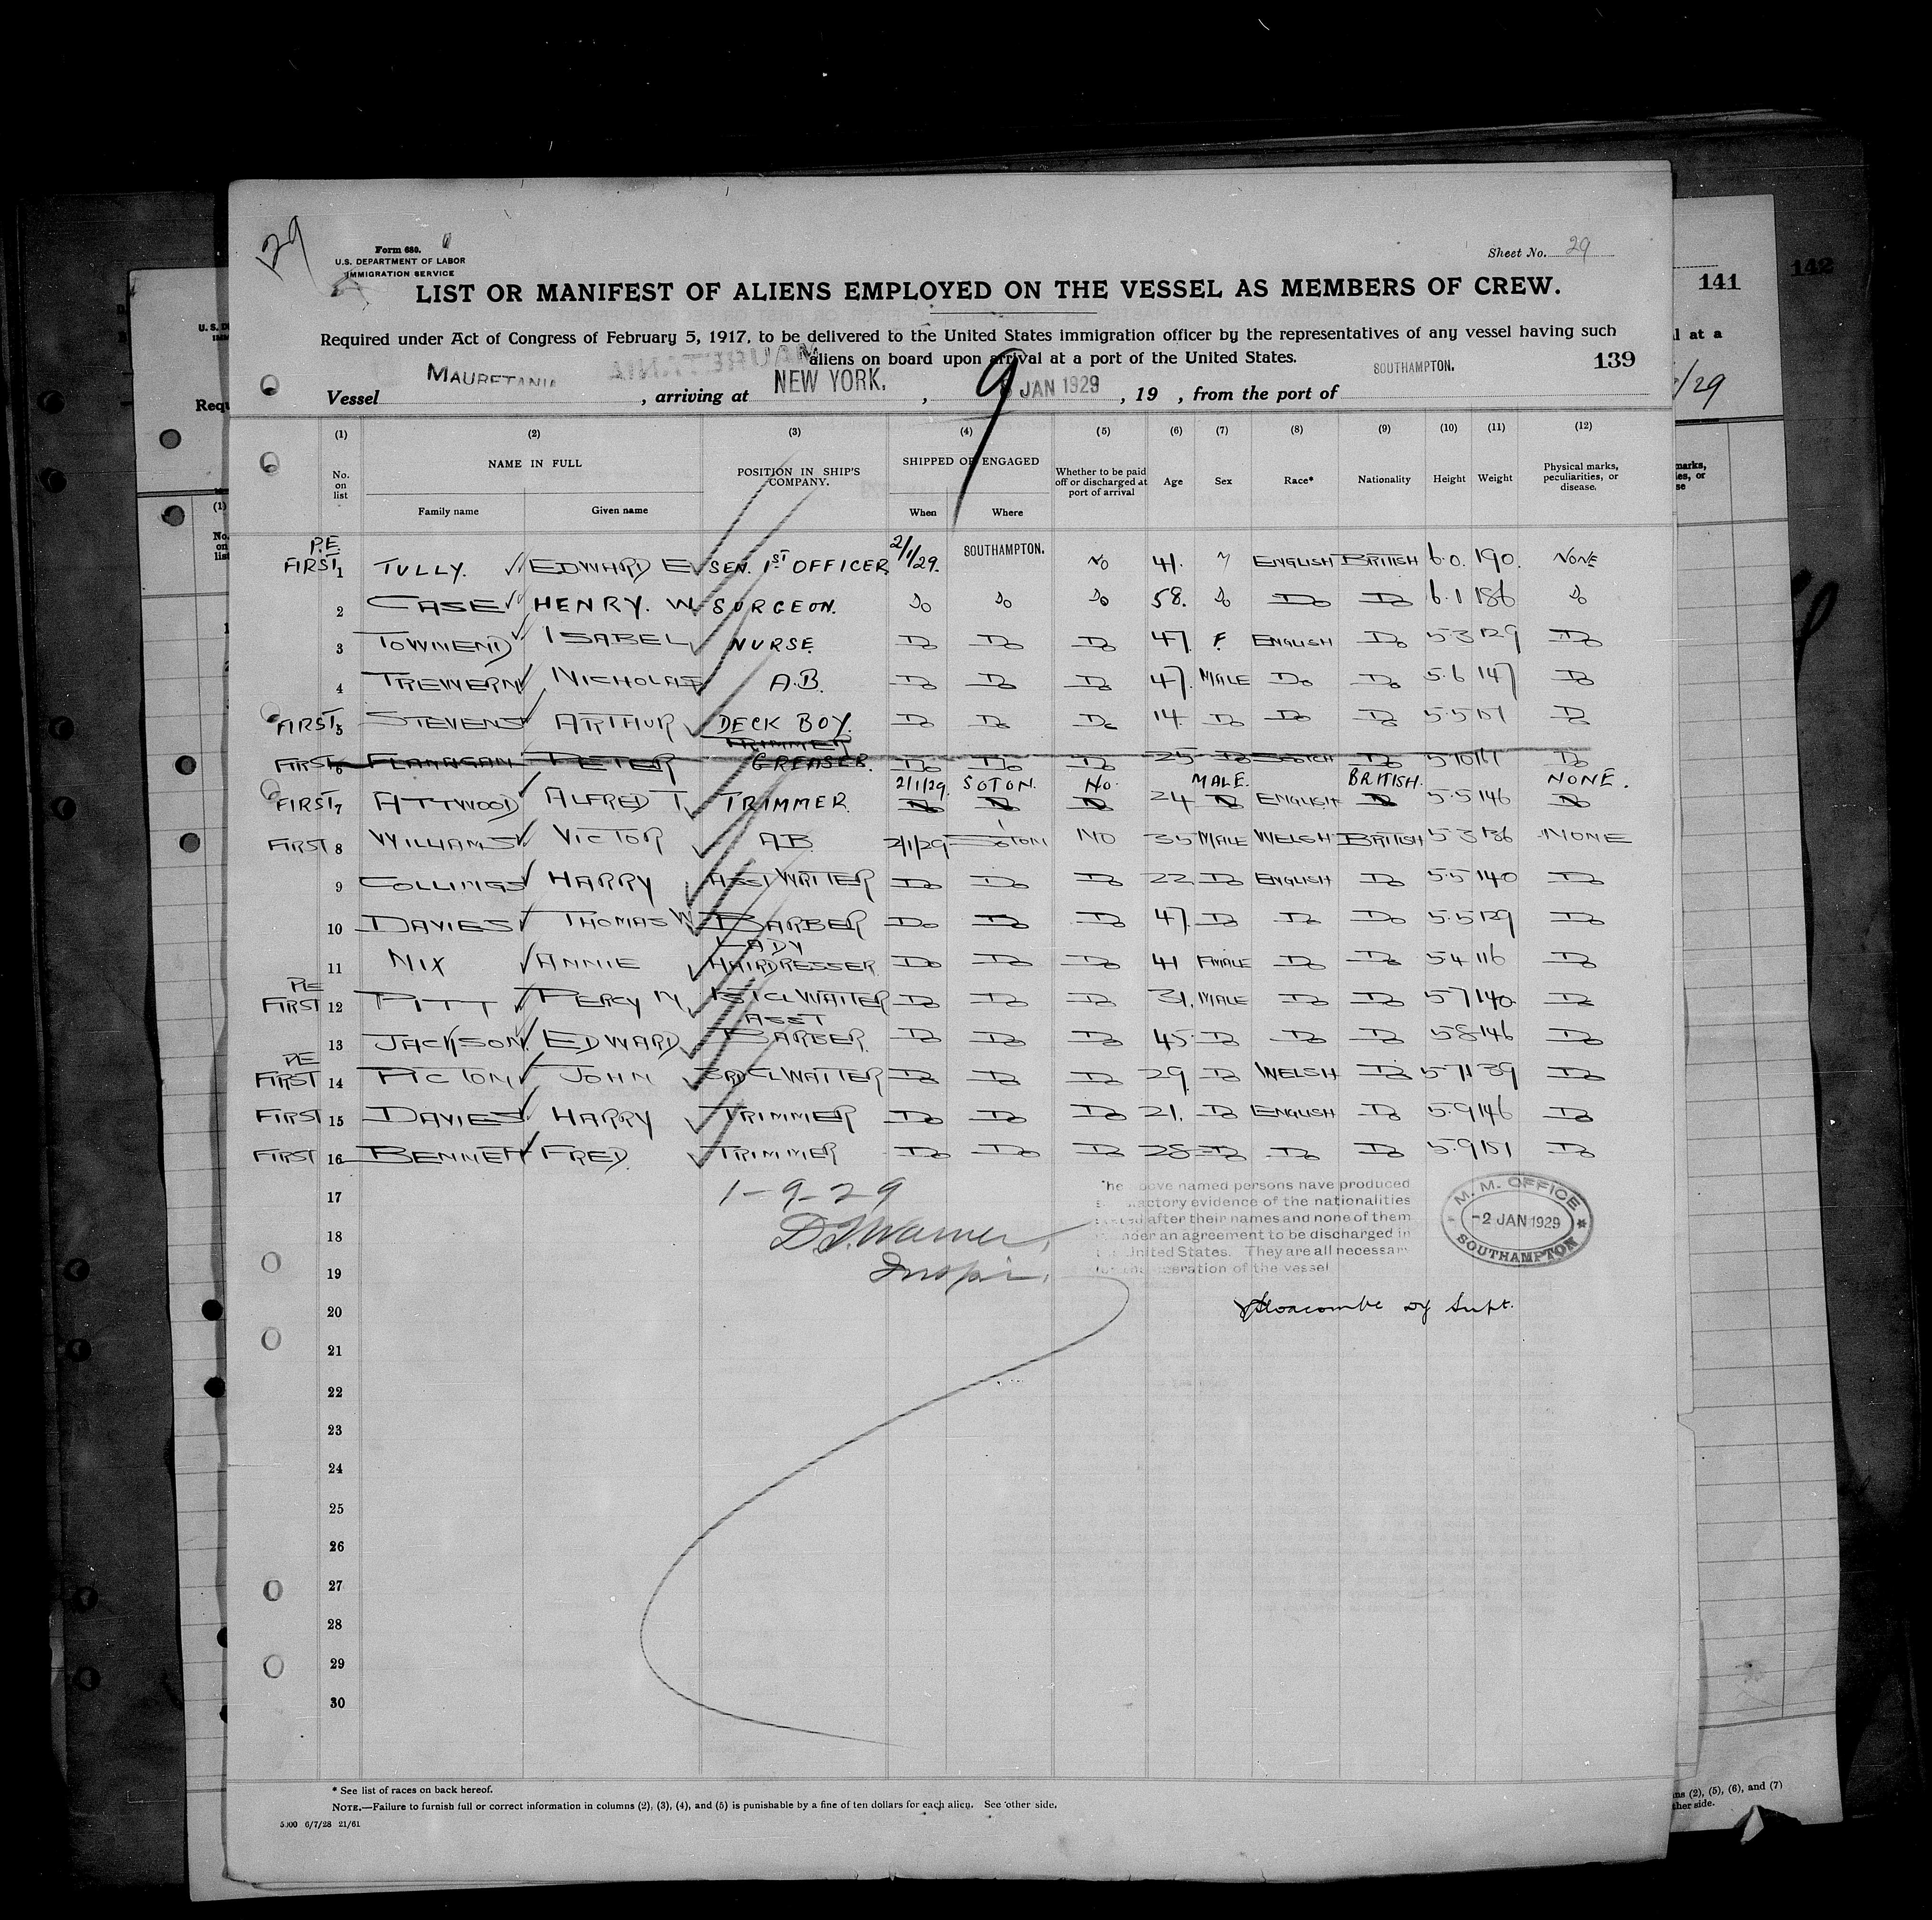 129
Form 680.
U.S. DEPARTMENT OF LABOR
IMMIGRATION SERVICE
Sheet No. 29
LIST OR MANIFEST OF ALIENS EMPLOYED ON THE VESSEL AS MEMBERS OF CREW.
Required under Act of Congress of February 5, 1917, to be delivered to the United States immigration officer by the representatives of any vessel having such
aliens on board upon arrival at a port of the United States.
139
Vessel MAURETANIA, arriving at NEW YORK, 9 JAN 1929, 19 , from the port of SOUTHAMPTON.
(1) (2) (3) (4) (5) (6) (7) (8) (9) (10) (11) (12)
No. on list NAME IN FULL POSITION IN SHIP'S COMPANY. SHIPPED OR ENGAGED Whether to be paid off or discharged at port of arrival Age Sex Race* Nationality Height Weight Physical marks, peculiarities, or disease.
Family name Given name When Where
P.E. FIRST 1 TULLY. EDWARD E SEN. 1ST OFFICER 2/1/29. SOUTHAMPTON. No 41. M ENGLISH BRITISH 6.0. 190. NONE
2 CASE HENRY. W. SURGEON. Do Do Do 58. Do Do Do 6.1 186 Do
3 TOWNEND ISABEL NURSE. Do Do Do 47. F. ENGLISH Do 5.3 129 Do
4 TREWERN NICHOLAS A.B. Do Do Do 47. MALE Do Do 5.6 147 Do
FIRST 5 STEVENS ARTHUR DECK BOY. Do Do Do 14 Do Do Do 5.5 Do
TRIMMER
FIRST 6 FLANAGAN PETER GREASER. Do Do Do 25 Do SCOTCH Do 5.10 Do
2/1/29. SOTON. No. MALE. BRITISH. NONE.
FIRST 7 ATTWOOD ALFRED T. TRIMMER. Do Do Do 24 Do ENGLISH Do 5.5 146 Do
FIRST 8 WILLIAMS VICTOR A.B. 2/1/29 S'OTON NO 35 MALE WELSH BRITISH 5.3 136 NONE
9 COLLINGS HARRY ASST WAITER Do Do Do 22 Do ENGLISH Do 5.5 140 Do
10 DAVIES THOMAS W. BARBER Do Do Do 47. Do Do Do 5.5 129 Do
LADY
11 NIX ANNIE HAIRDRESSER. Do Do Do 41 FMALE Do Do 5.4 116 Do
PE FIRST 12 PITT PERCY M. 1ST CL WAITER Do Do Do 31. MALE Do Do 5.7 140. Do
ASST
13 JACKSON. EDWARD BARBER. Do Do Do 45. Do Do Do 5.8 146 Do
PE FIRST 14 PICTON JOHN 3RD CL WAITER Do Do Do 29. Do WELSH Do 5.7 139 Do
FIRST 15 DAVIES HARRY TRIMMER Do Do Do 21. Do ENGLISH Do 5.9 146 Do
FIRST 16 BENNETT FRED. TRIMMER Do Do Do 28 Do Do Do 5.9 151 Do
17
1-9-29
18
19
20
21
22
23
24
25
26
27
28
29
30
above named persons have produced
evidence of the nationalities
after their names and none of them
under an agreement to be discharged in
United States. They are all necessary
operation of the vessel
M. M. OFFICE
-2 JAN 1929
SOUTHAMPTON
Dy Supt.
* See list of races on back hereof.
NOTE.—Failure to furnish full or correct information in columns (2), (3), (4), and (5) is punishable by a fine of ten dollars for each alien. See other side.
5000 6/7/28 21/61
141
142
l at a
/29
marks,
(1)
No.
on
list
U. S. D
Requ
ns (2), (5), (6), and (7)
ther side.